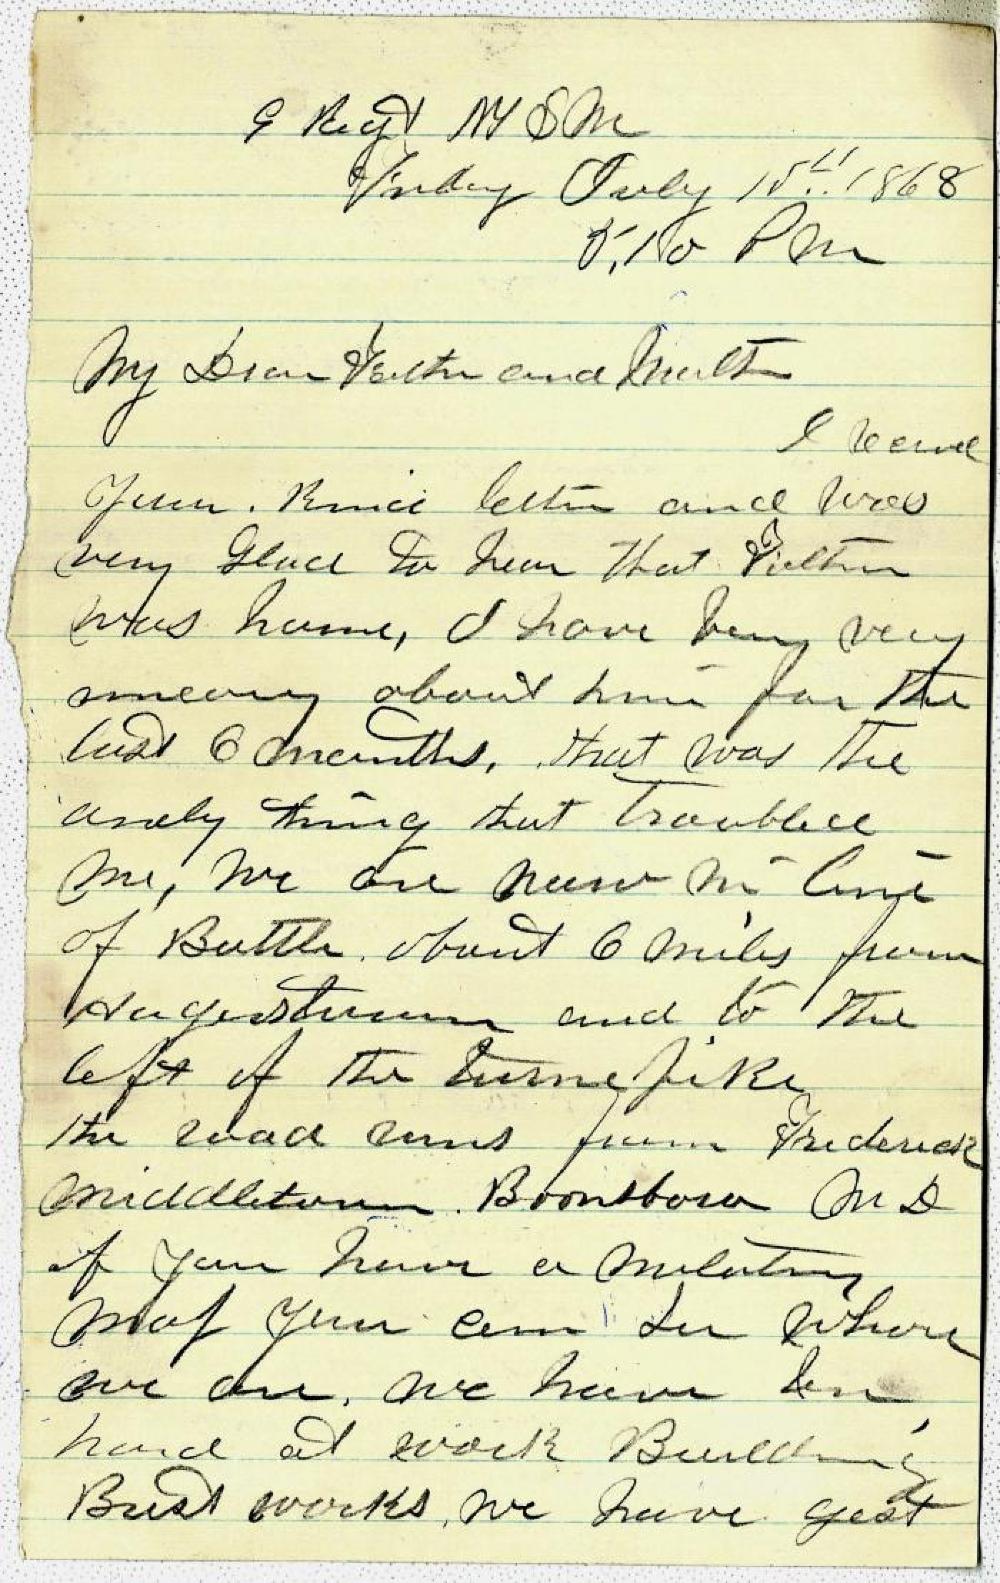 9 Regt NYSM
Friday July 10th 1868
5,10 PM
My Dear Father and Mother
I recived
your kind letter and was
very Glad to hear that Father
was home, I have being very
uneasy about him for the
last 6 months, that was the
only thing that Troubled
me, we are now in line
of Battle about 6 miles from
Hagerstown and to the
left of the turnepike
the road runs from Frederick
Middletown. Boonsboro MD
if you have a military
map you can see where
we are. we have ben
hard at work Building
Brest works, we have gest